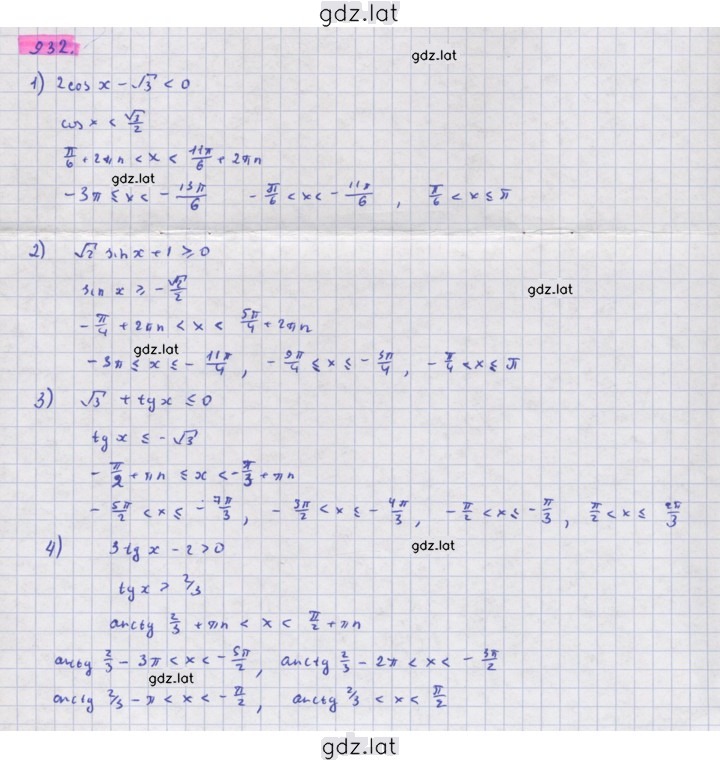 gdz.lat
932.
gdz.lat
1) 2cos x − √3 < 0
cos x < √3/2
π/6 + 2πn < x < 11π/6 + 2πn
gdz.lat
−3π ≤ x < −13π/6   −π/6 < x < −11π/6 , π/6 < x ≤ π
2) √2 sin x + 1 ≥ 0
sin x ≥ −√2/2
gdz.lat
−π/4 + 2πn < x < 5π/4 + 2πn
gdz.lat
−3π ≤ x ≤ −11π/4 , −9π/4 ≤ x ≤ −3π/4 , −π/4 < x ≤ π
3) √3 + tg x ≤ 0
tg x ≤ −√3
−π/2 + πn ≤ x < −π/3 + πn
−5π/2 < x ≤ −7π/3 , −3π/2 < x ≤ −4π/3 , −π/2 < x ≤ −π/3 , π/2 < x ≤ 2π/3
4) 3tg x − 2 > 0
gdz.lat
tg x > 2/3
arctg 2/3 + πn < x < π/2 + πn
arctg 2/3 − 3π < x < −5π/2 , arctg 2/3 − 2π < x < −3π/2
gdz.lat
arctg 2/3 − π < x < −π/2 , arctg 2/3 < x < π/2
gdz.lat